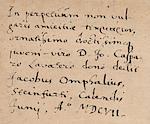 In perpetuam non vul-
garis amicitiæ tesseram,
ornatissimo doctissimoq
juveni-viro D. Jo. Caspa-
ro Lavatero dono dedit
Jacobus Omphalius,
Calendis
Junij. A.° MDCVII.